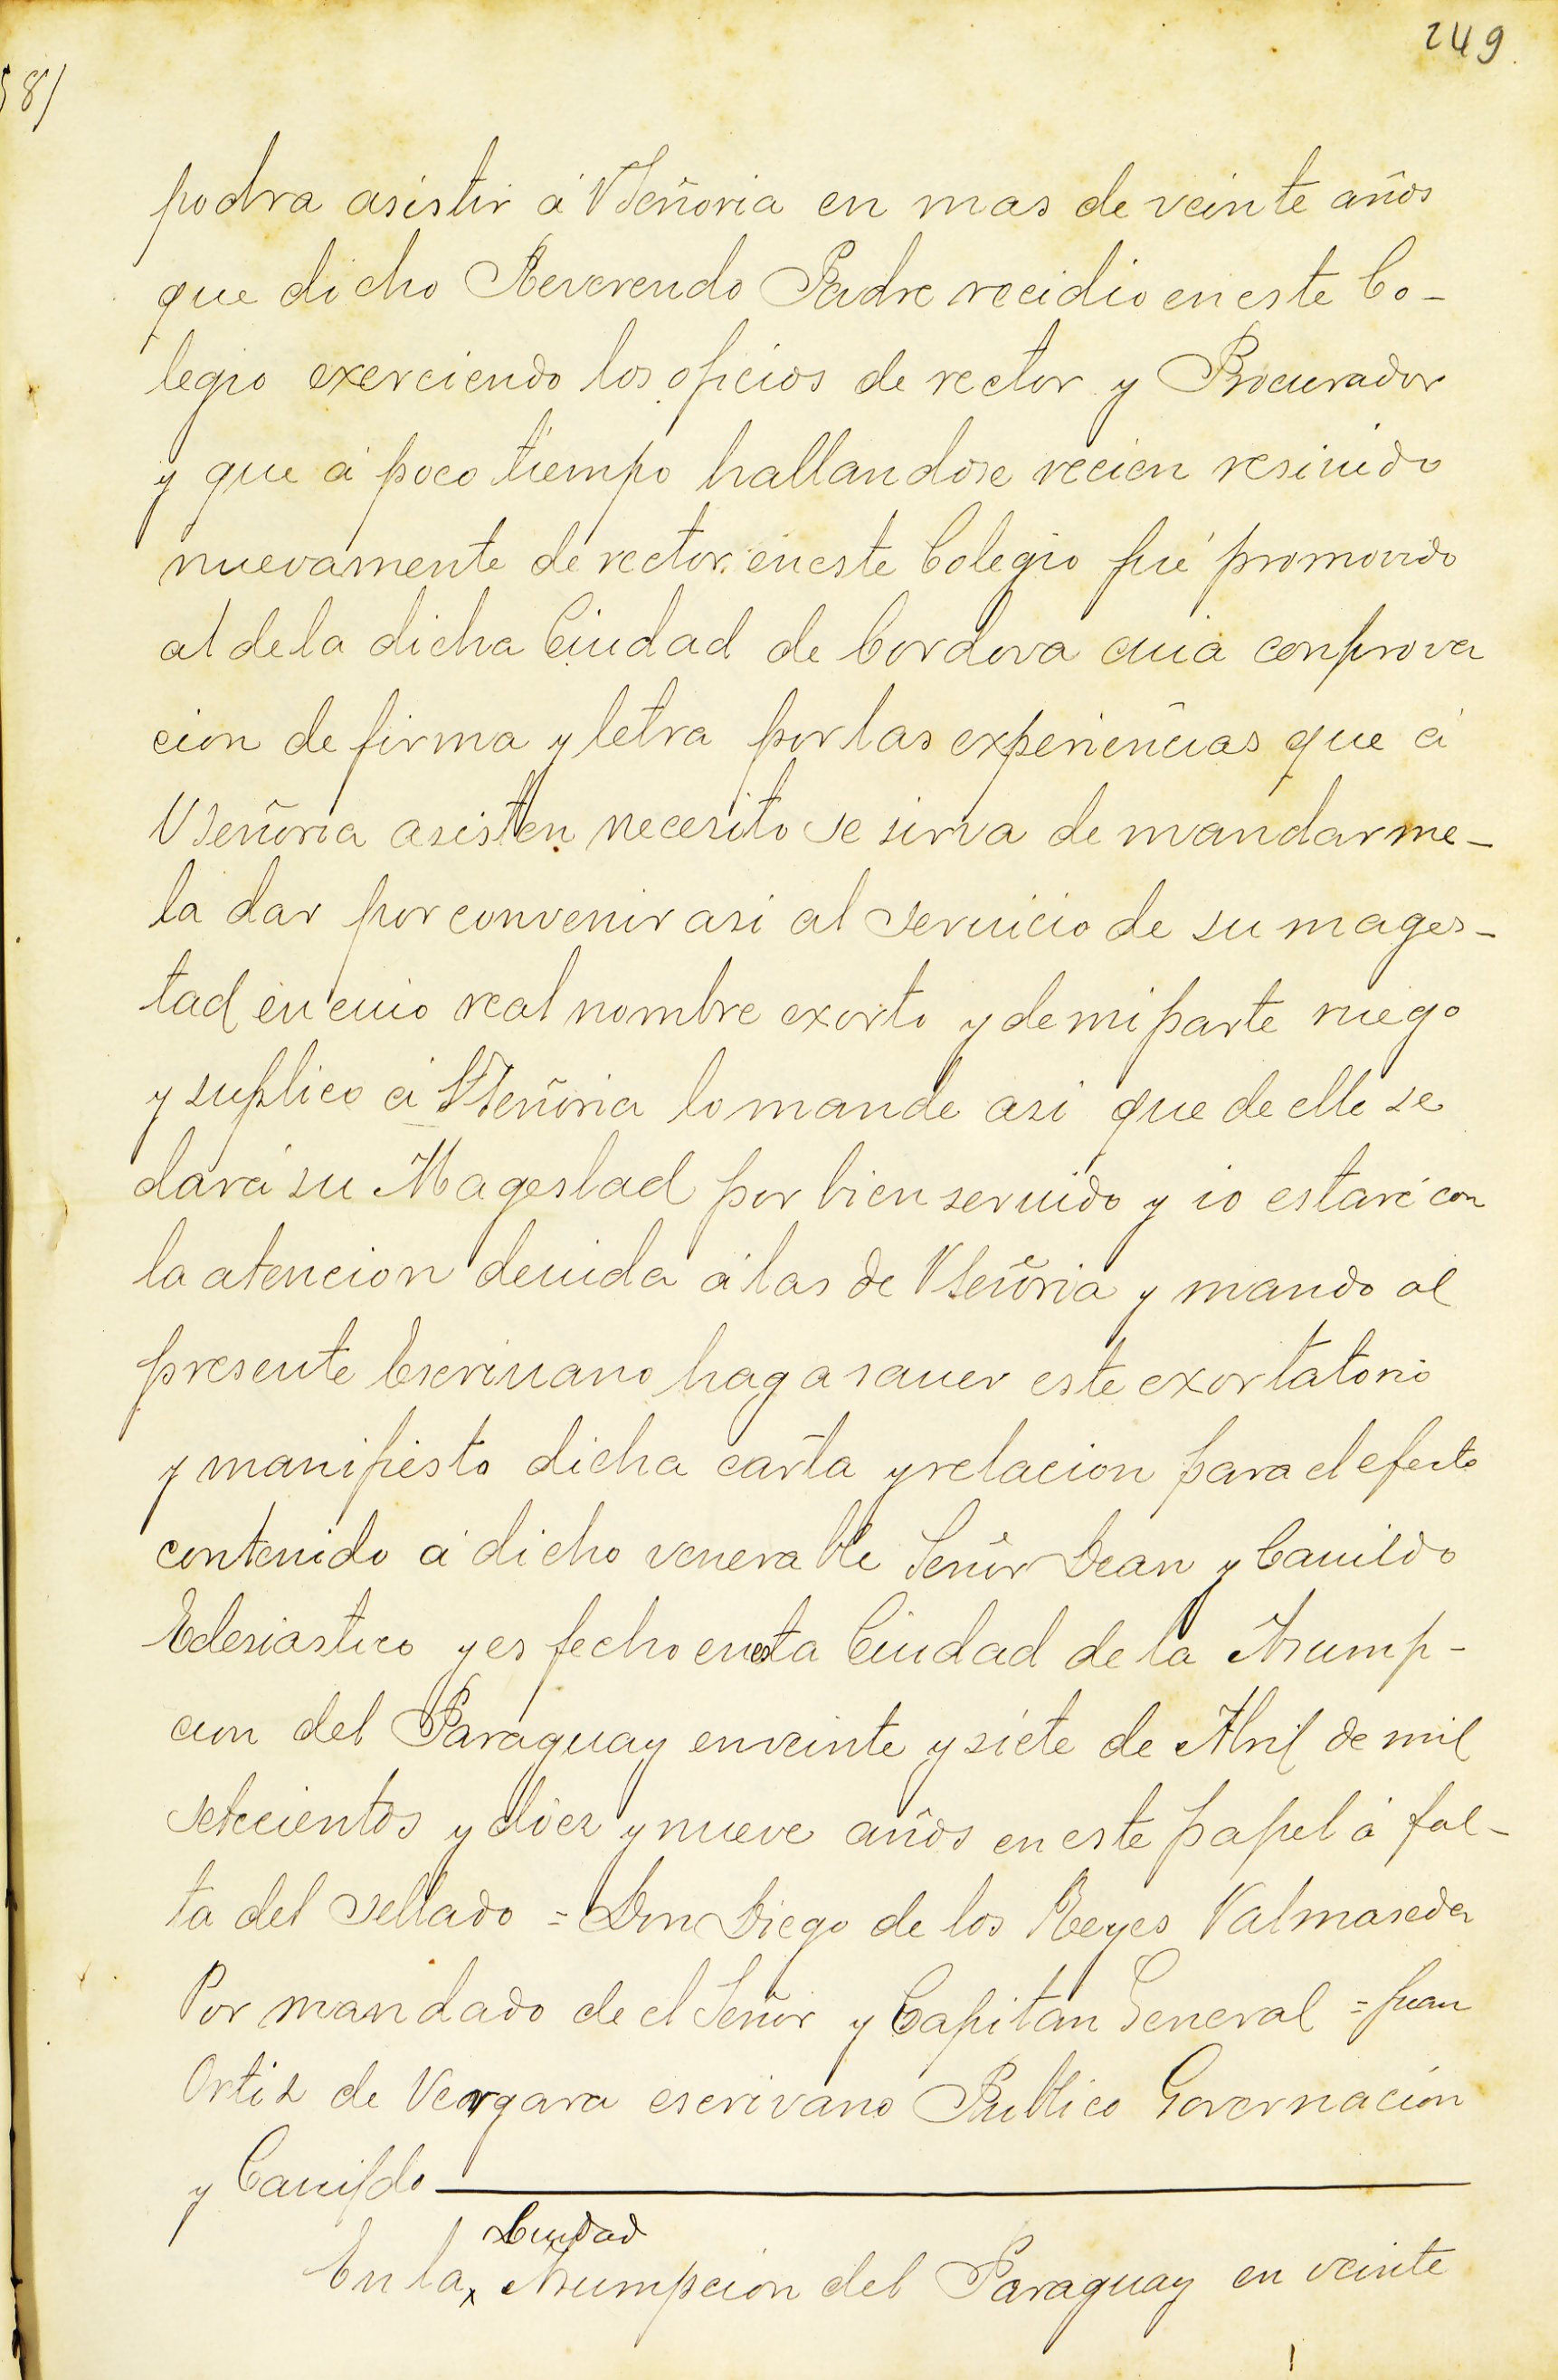 249
58/
podra asistir á VSeñoria en mas de veinte años
que dicho Reverendo Padre recidio en este Co-
legio exerciendo los oficios de rector y Procurador
y que á poco tiempo hallandose recien resiuido
nuevamente de rector en este Colegio fué promovido
al de la dicha Ciudad de Cordova cuia conprova
cion de firma y letra por las experiencias que á
VSeñoria asisten necesito se sirva de mandarme-
la dar por convenir asi al seruicio de su mages-
tad en cuio real nombre exorto y de mi parte ruego
y suplico á VSeñoria lo mande asi que de ello se
dará su Magestad por bien seruido y io estaré con
la atencion deuida á las de VSeñoria y mando al
presente Escriuano haga sauer este exortatorio
y manifiesto dicha carta y relacion para el efecto
contenido á dicho venerable Señor Dean y Cauildo
Eclesiastico y es fecho en esta Ciudad de la Asump-
cion del Paraguay en veinte y siete de Abril de mil
setecientos y diez y nueve años en este papel á fal-
ta del sellado = Don Diego de los Reyes Valmaseda
Por mandado de el Señor y Capitan General = Juan
Ortiz de Vergara escrivano Publico Governacion
y Cauildo
Ciudad
En la Asumpcion del Paraguay en veinte